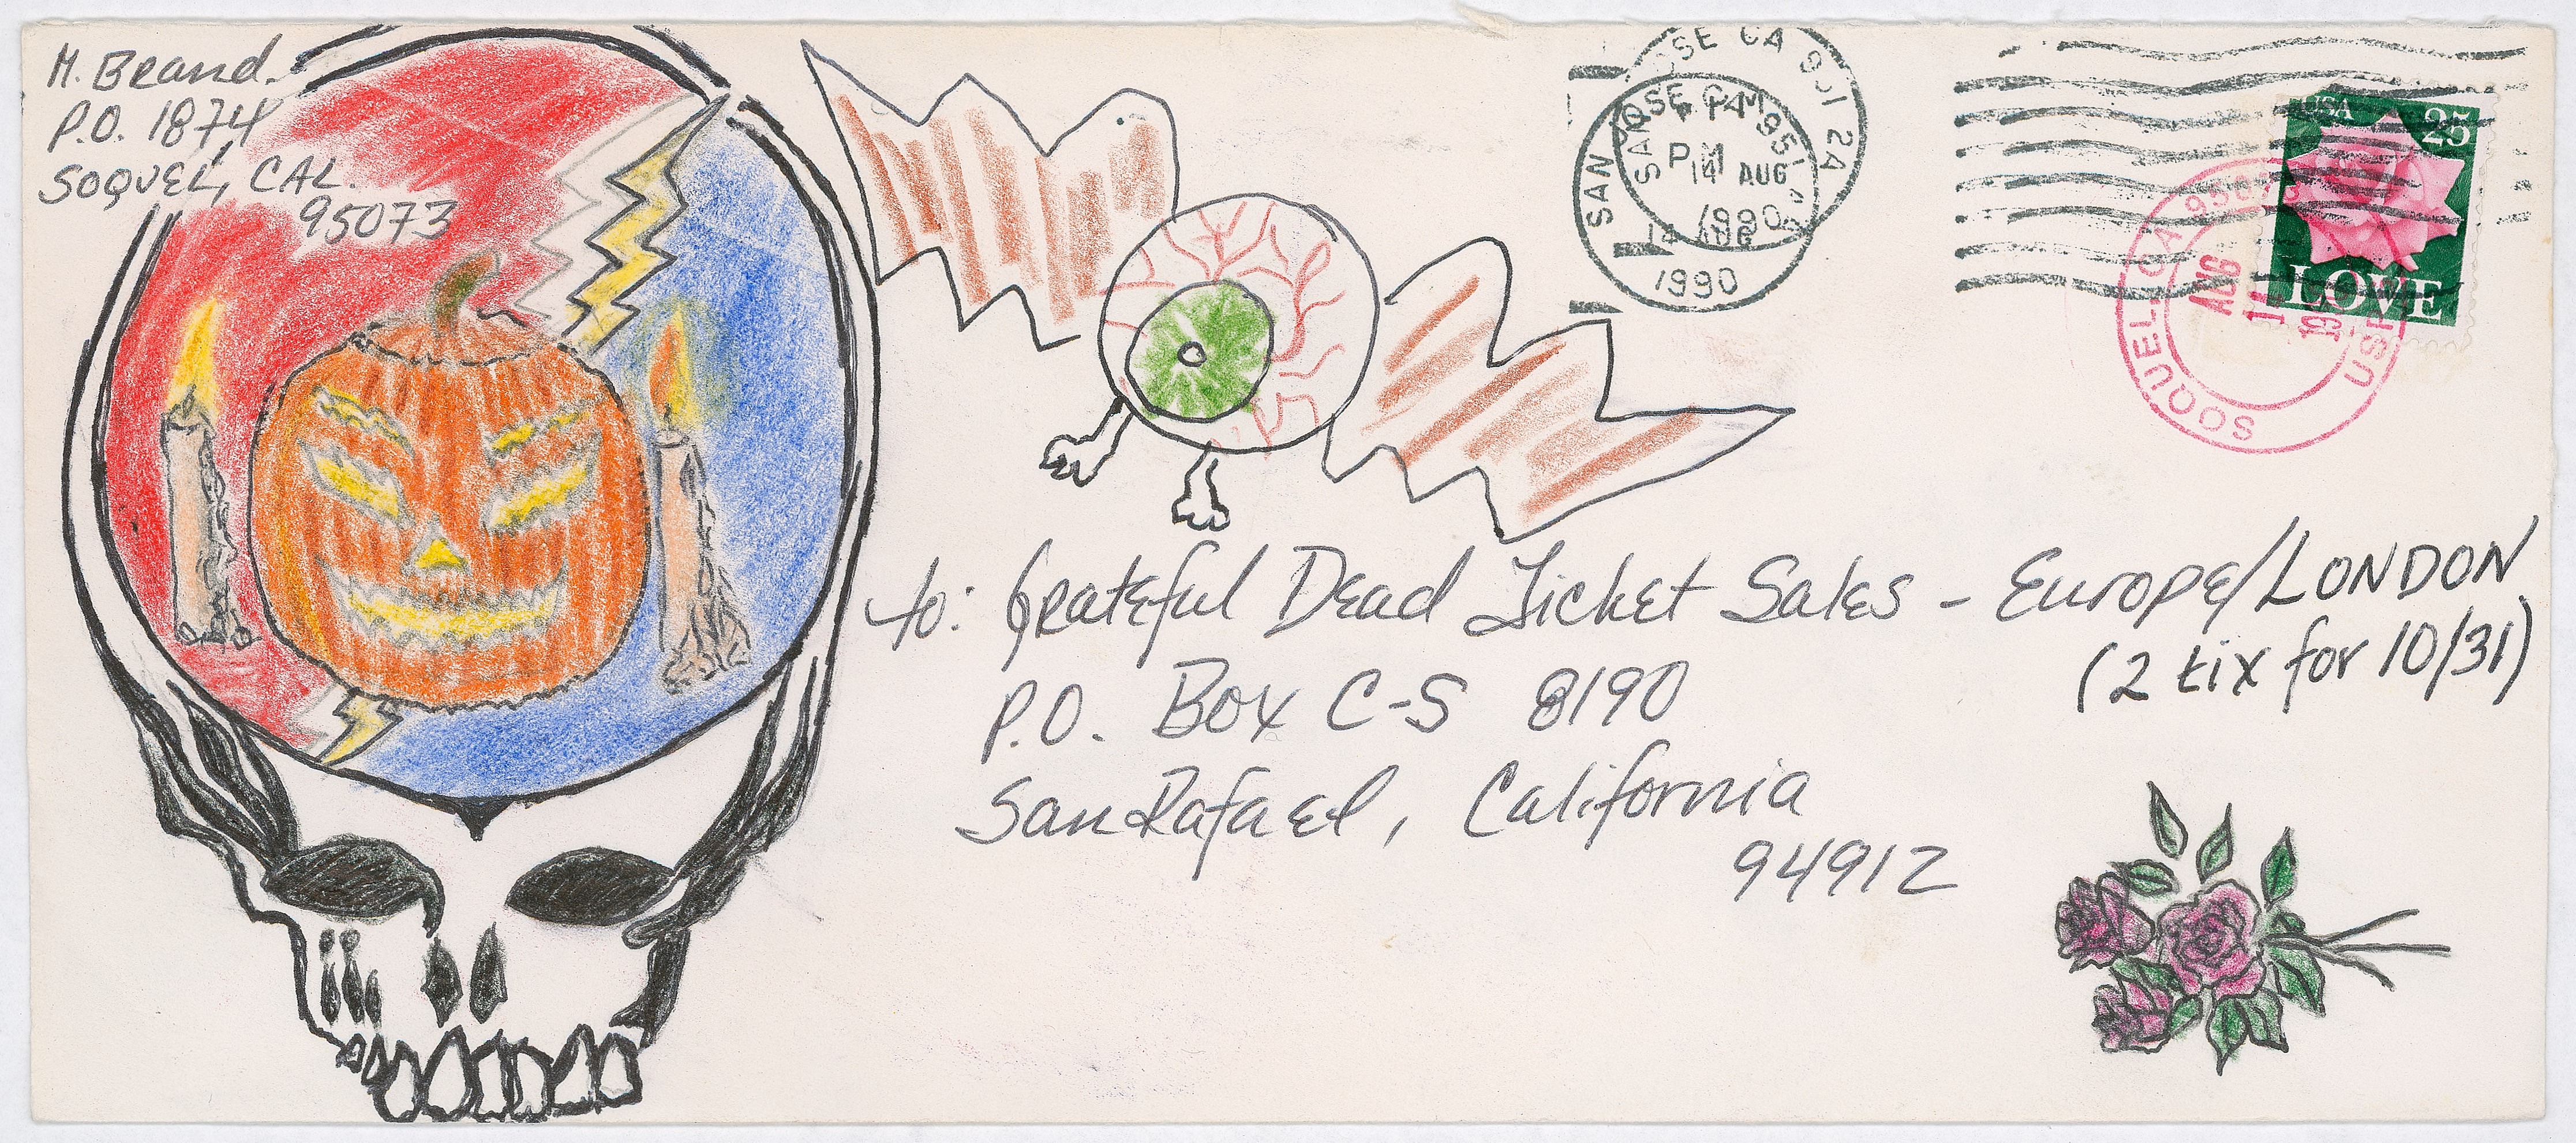 M. Brand.
P.O. 1874
SOQUEL, CAL.
95073
SAN JOSE CA 951
PM
14 AUG
1990
SAN JOSE CA 951
PM
14 AUG
1990
USA 25
LOVE
SOQUEL CA 95073
AUG
14
USPO
to: Grateful Dead Ticket Sales - Europe/LONDON
(2 tix for 10/31)
P.O. Box C-S 8190
San Rafael, California
94912